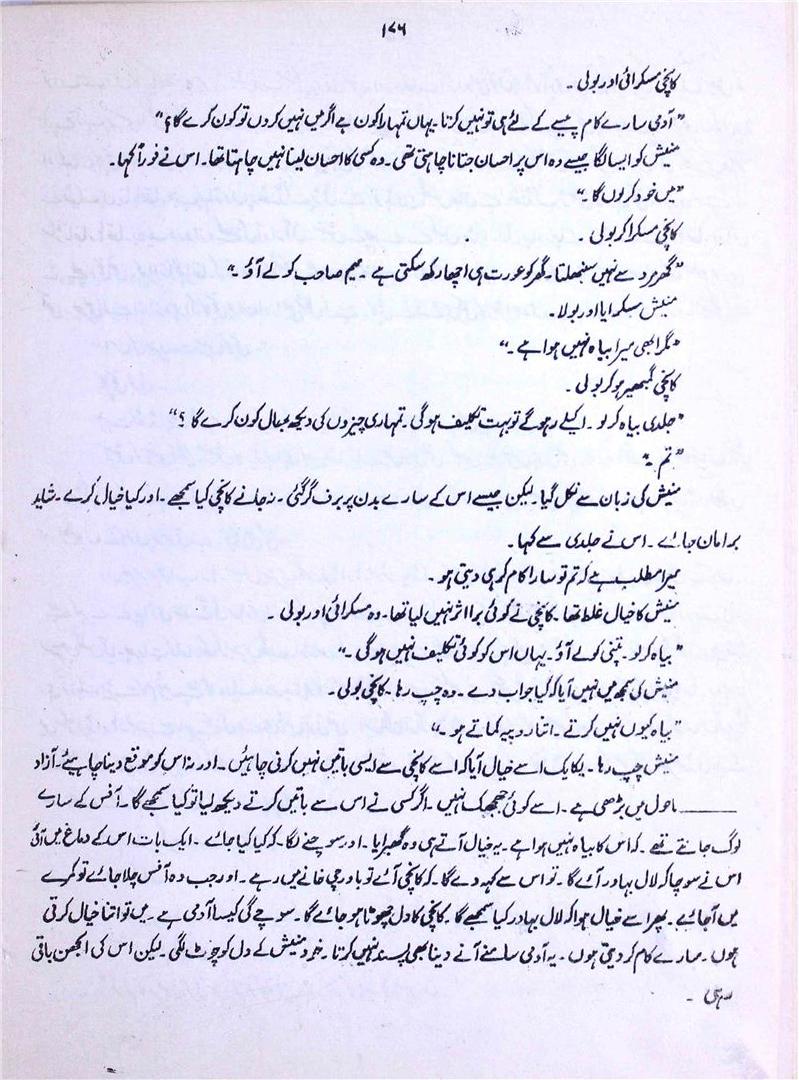 ۱۷۶
کانچی مسکرائی اور بولی۔
"آدمی سارے کام پیسے کے لئے ہی تو نہیں کرتا۔ یہاں تمہارا کون ہے اگر میں نہیں کروں تو کون کرے گا؟"
منیش کو ایسا لگا جیسے وہ اس پر احسان جتانا چاہتی تھی۔ وہ کسی کا احسان لینا نہیں چاہتا تھا۔ اس نے فوراً کہا۔
"میں خود کروں گا۔"
کانچی مسکرا کر بولی۔
"گھر مرد سے نہیں سنبھلتا۔ گھر کو عورت ہی اچھا رکھ سکتی ہے۔ میم صاحب کو لے آؤ۔"
منیش مسکرایا اور بولا۔
"مگر ابھی میرا بیاہ نہیں ہوا ہے۔"
کانچی گمبھیر ہو کر بولی۔
"جلدی بیاہ کر لو۔ اکیلے رہو گے تو بہت تکلیف ہوگی۔ تمہاری چیزوں کی دیکھ بھال کون کرے گا؟"
"تم۔"
منیش کی زبان سے نکل گیا۔ لیکن جیسے اس کے سارے بدن پر برف گر گئی۔ نہ جانے کانچی کیا سمجھے۔ اور کیا خیال کرے۔ شاید
برا مان جائے۔ اس نے جلدی سے کہا۔
میرا مطلب ہے کہ تم تو سارا کام کر ہی دیتی ہو۔
منیش کا خیال غلط تھا۔ کانچی نے کوئی برا اثر نہیں لیا تھا۔ وہ مسکرائی اور بولی۔
"بیاہ کر لو۔ پتنی کو لے آؤ۔ یہاں اس کو کوئی تکلیف نہیں ہوگی۔"
منیش کی سمجھ میں نہیں آیا کہ کیا جواب دے۔ وہ چپ رہا۔ کانچی بولی۔
"بیاہ کیوں نہیں کرتے۔ اتنا روپیہ کماتے ہو۔"
منیش چپ رہا۔ یکایک اسے خیال آیا کہ اسے کانچی سے ایسی باتیں نہیں کرنی چاہئیں۔ اور نہ اس کو موقع دینا چاہیئے۔ آزاد
ماحول میں بڑھی ہے۔ اسے کوئی جھجھک نہیں۔ اگر کسی نے اس سے باتیں کرتے دیکھ لیا تو کیا سمجھے گا۔ آفس کے سارے
لوگ جانتے تھے۔ کہ اس کا بیاہ نہیں ہوا ہے۔ یہ خیال آتے ہی وہ گھبرایا۔ اور سوچنے لگا۔ کہ کیا کیا جائے۔ ایک بات اس کے دماغ میں آئی
اس نے سوچا کہ لال بہادر آئے گا۔ تو اس سے کہہ دے گا۔ کہ کانچی آئے تو باورچی خانے میں رہے۔ اور جب وہ آفس چلا جائے تو کمرے
میں آجائے۔ پھر اسے خیال ہوا کہ لال بہادر کیا سمجھے گا۔ کانچی کا دل چھوٹا ہو جائے گا۔ سوچے گی کیسا آدمی ہے۔ میں تو اتنا خیال کرتی
ہوں۔ سارے کام کر دیتی ہوں۔ یہ آدمی سامنے آنے دینا بھی پسند نہیں کرتا۔ خود منیش کے دل کو چوٹ لگی۔ لیکن اس کی الجھن باقی
رہی۔